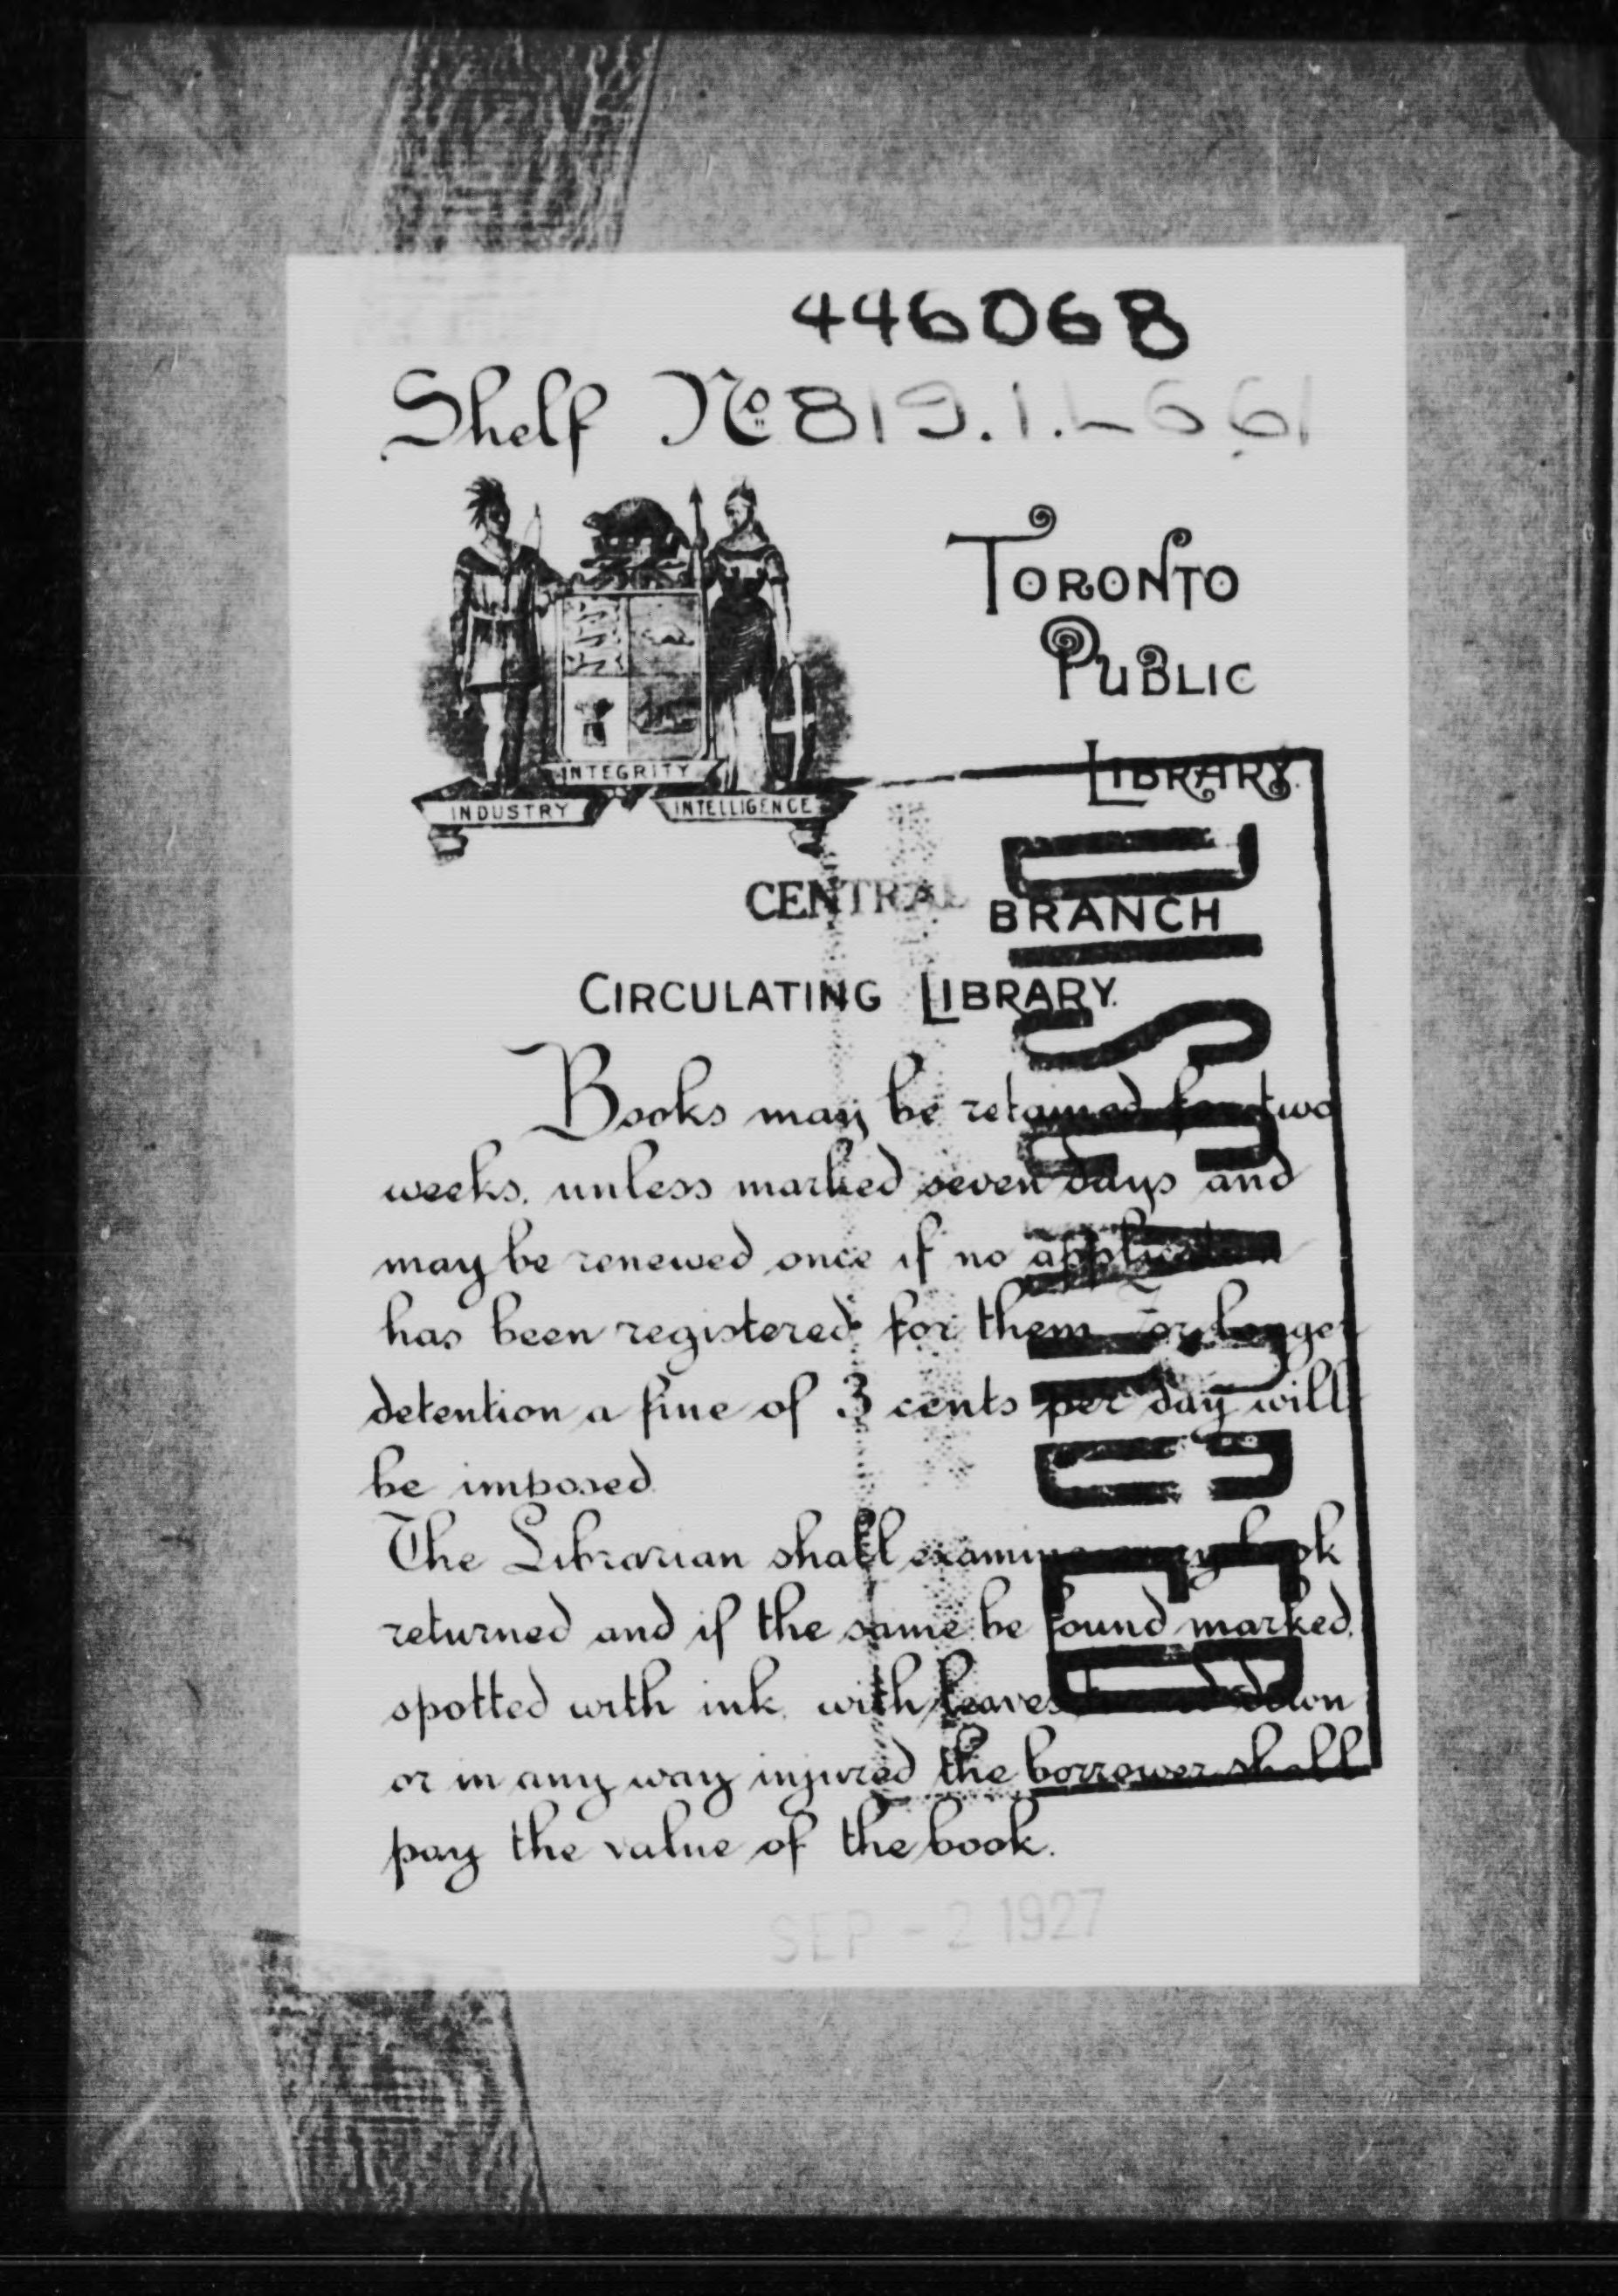 446068
Shelf No 819.1. L661
TORONTO
PUBLIC
LIBRARY.
INTEGRITY
INDUSTRY INTELLIGENCE
CENTRAL BRANCH
CIRCULATING LIBRARY.
Books may be retained for two
weeks, unless marked seven days and
may be renewed once if no application
has been registered for them. For longer
detention a fine of 3 cents per day will
be imposed.
The Librarian shall examine every book
returned and if the same be found marked,
spotted with ink, with leaves turned down
or in any way injured the borrower shall
pay the value of the book.
SEP - 2 1927
DISCARDED